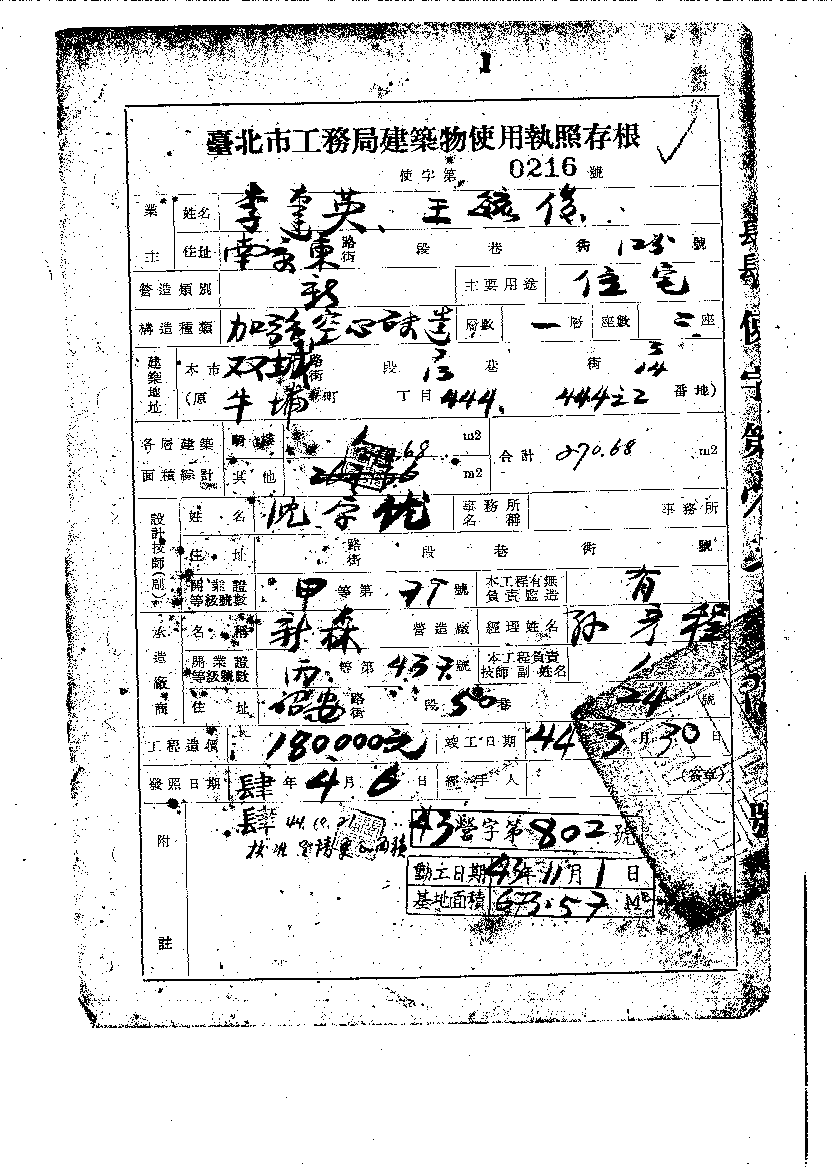 1
臺北市工務局建築物使用執照存根
使字第 0216 號
業主 姓名 李建英、王毓俊
住址 南京東 路街 段 巷 街 125 號
營造類別 新 主要用途 住宅
構造種類 加強空心磚造 層數 一層 座數 二座
建築地址 本市 双城 路街 段 13 巷 街 3 14
(原 牛埔 町 丁目 444、444之2 番地)
各層建築面積綜計 騎樓 m2 合計 270.68 m2
其他 m2
設計技師(副) 姓名 沈 事務所名稱 事務所
住址 路街 段 巷 街 號
開業證等級號數 甲 等第 號 本工程有無負責監造 有
承造廠商 名稱 新森 營造廠 經理姓名 孫 程
開業證等級號數 丙 等第 437 號 本工程負責技師副姓名
住址 詔安 路街 段 50 巷 24 號
工程造價 180000元 竣工日期 44 3月30日
發照日期 肆年4月6日 經手人 (簽章)
附註
43營字第802號
動工日期 43年11月1日
基地面積 673.57 M²